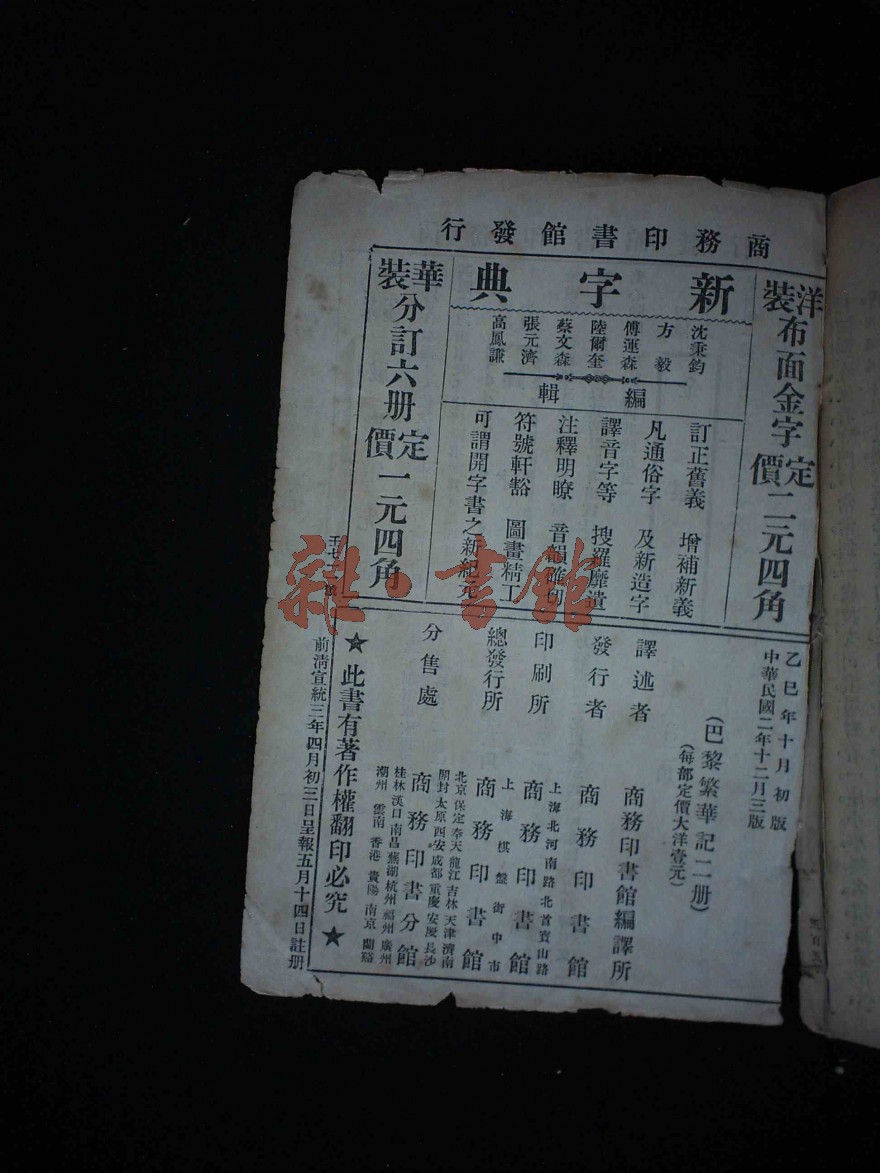 商務印書館發行
洋裝布面金字定價二元四角
新字典
沈秉鈞
方毅
傅運森
陸爾奎
蔡文森
張元濟
高鳳謙
編輯
訂正舊義 增補新義
凡通俗字 及新造字
譯音字等 搜羅靡遺
注釋明瞭 音韻確切
符號軒豁 圖畫精工
可謂開字書之新紀元
華裝分訂六册定價一元四角
乙巳年十月初版
中華民國二年十二月三版
(巴)黎繁華記二册)
(每部定價大洋壹元)
譯述者 商務印書館編譯所
發行者 商務印書館
上海北河南路北首寶山路
印刷所 商務印書館
上海棋盤街中市
總發行所 商務印書館
北京保定奉天龍江吉林天津濟南
開封太原西安成都重慶安慶長沙
分售處 商務印書分館
桂林漢口南昌蕪湖杭州福州廣州
潮州 雲南 香港 貴陽 南京 蘭谿
★此書有著作權翻印必究★
前清宣統三年四月初三日呈報五月十四日註册
雜·書館